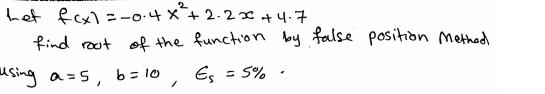 Let f(x) = -0.4 x² + 2.2x + 4.7
find root of the function by false position Method
using a=5, b=10, Es = 5% .